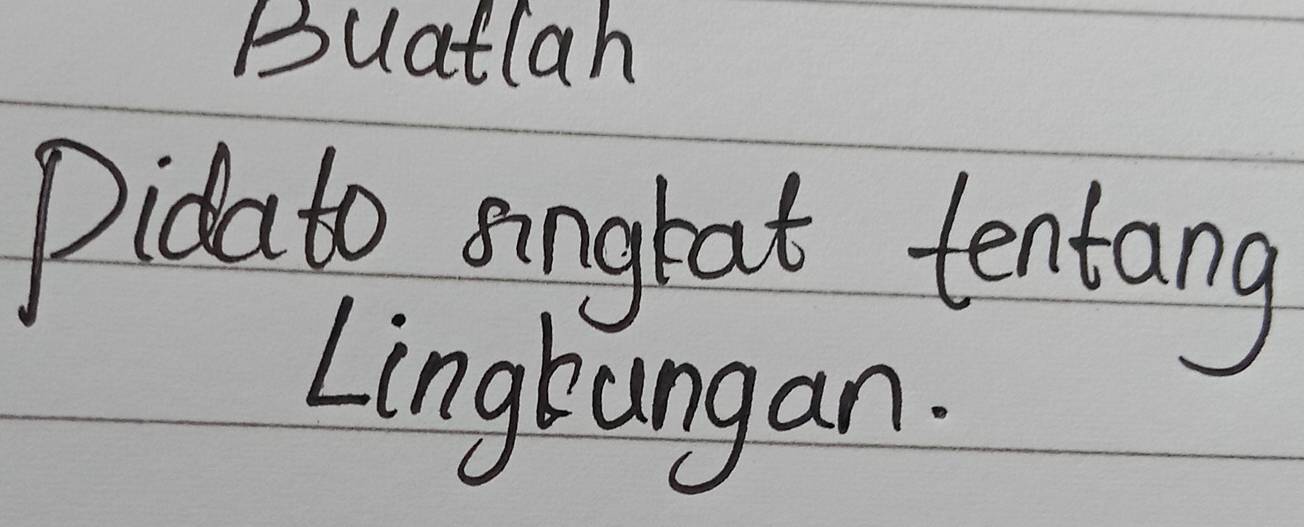 Buatlah
Pidato singkat tentang
Lingkungan.